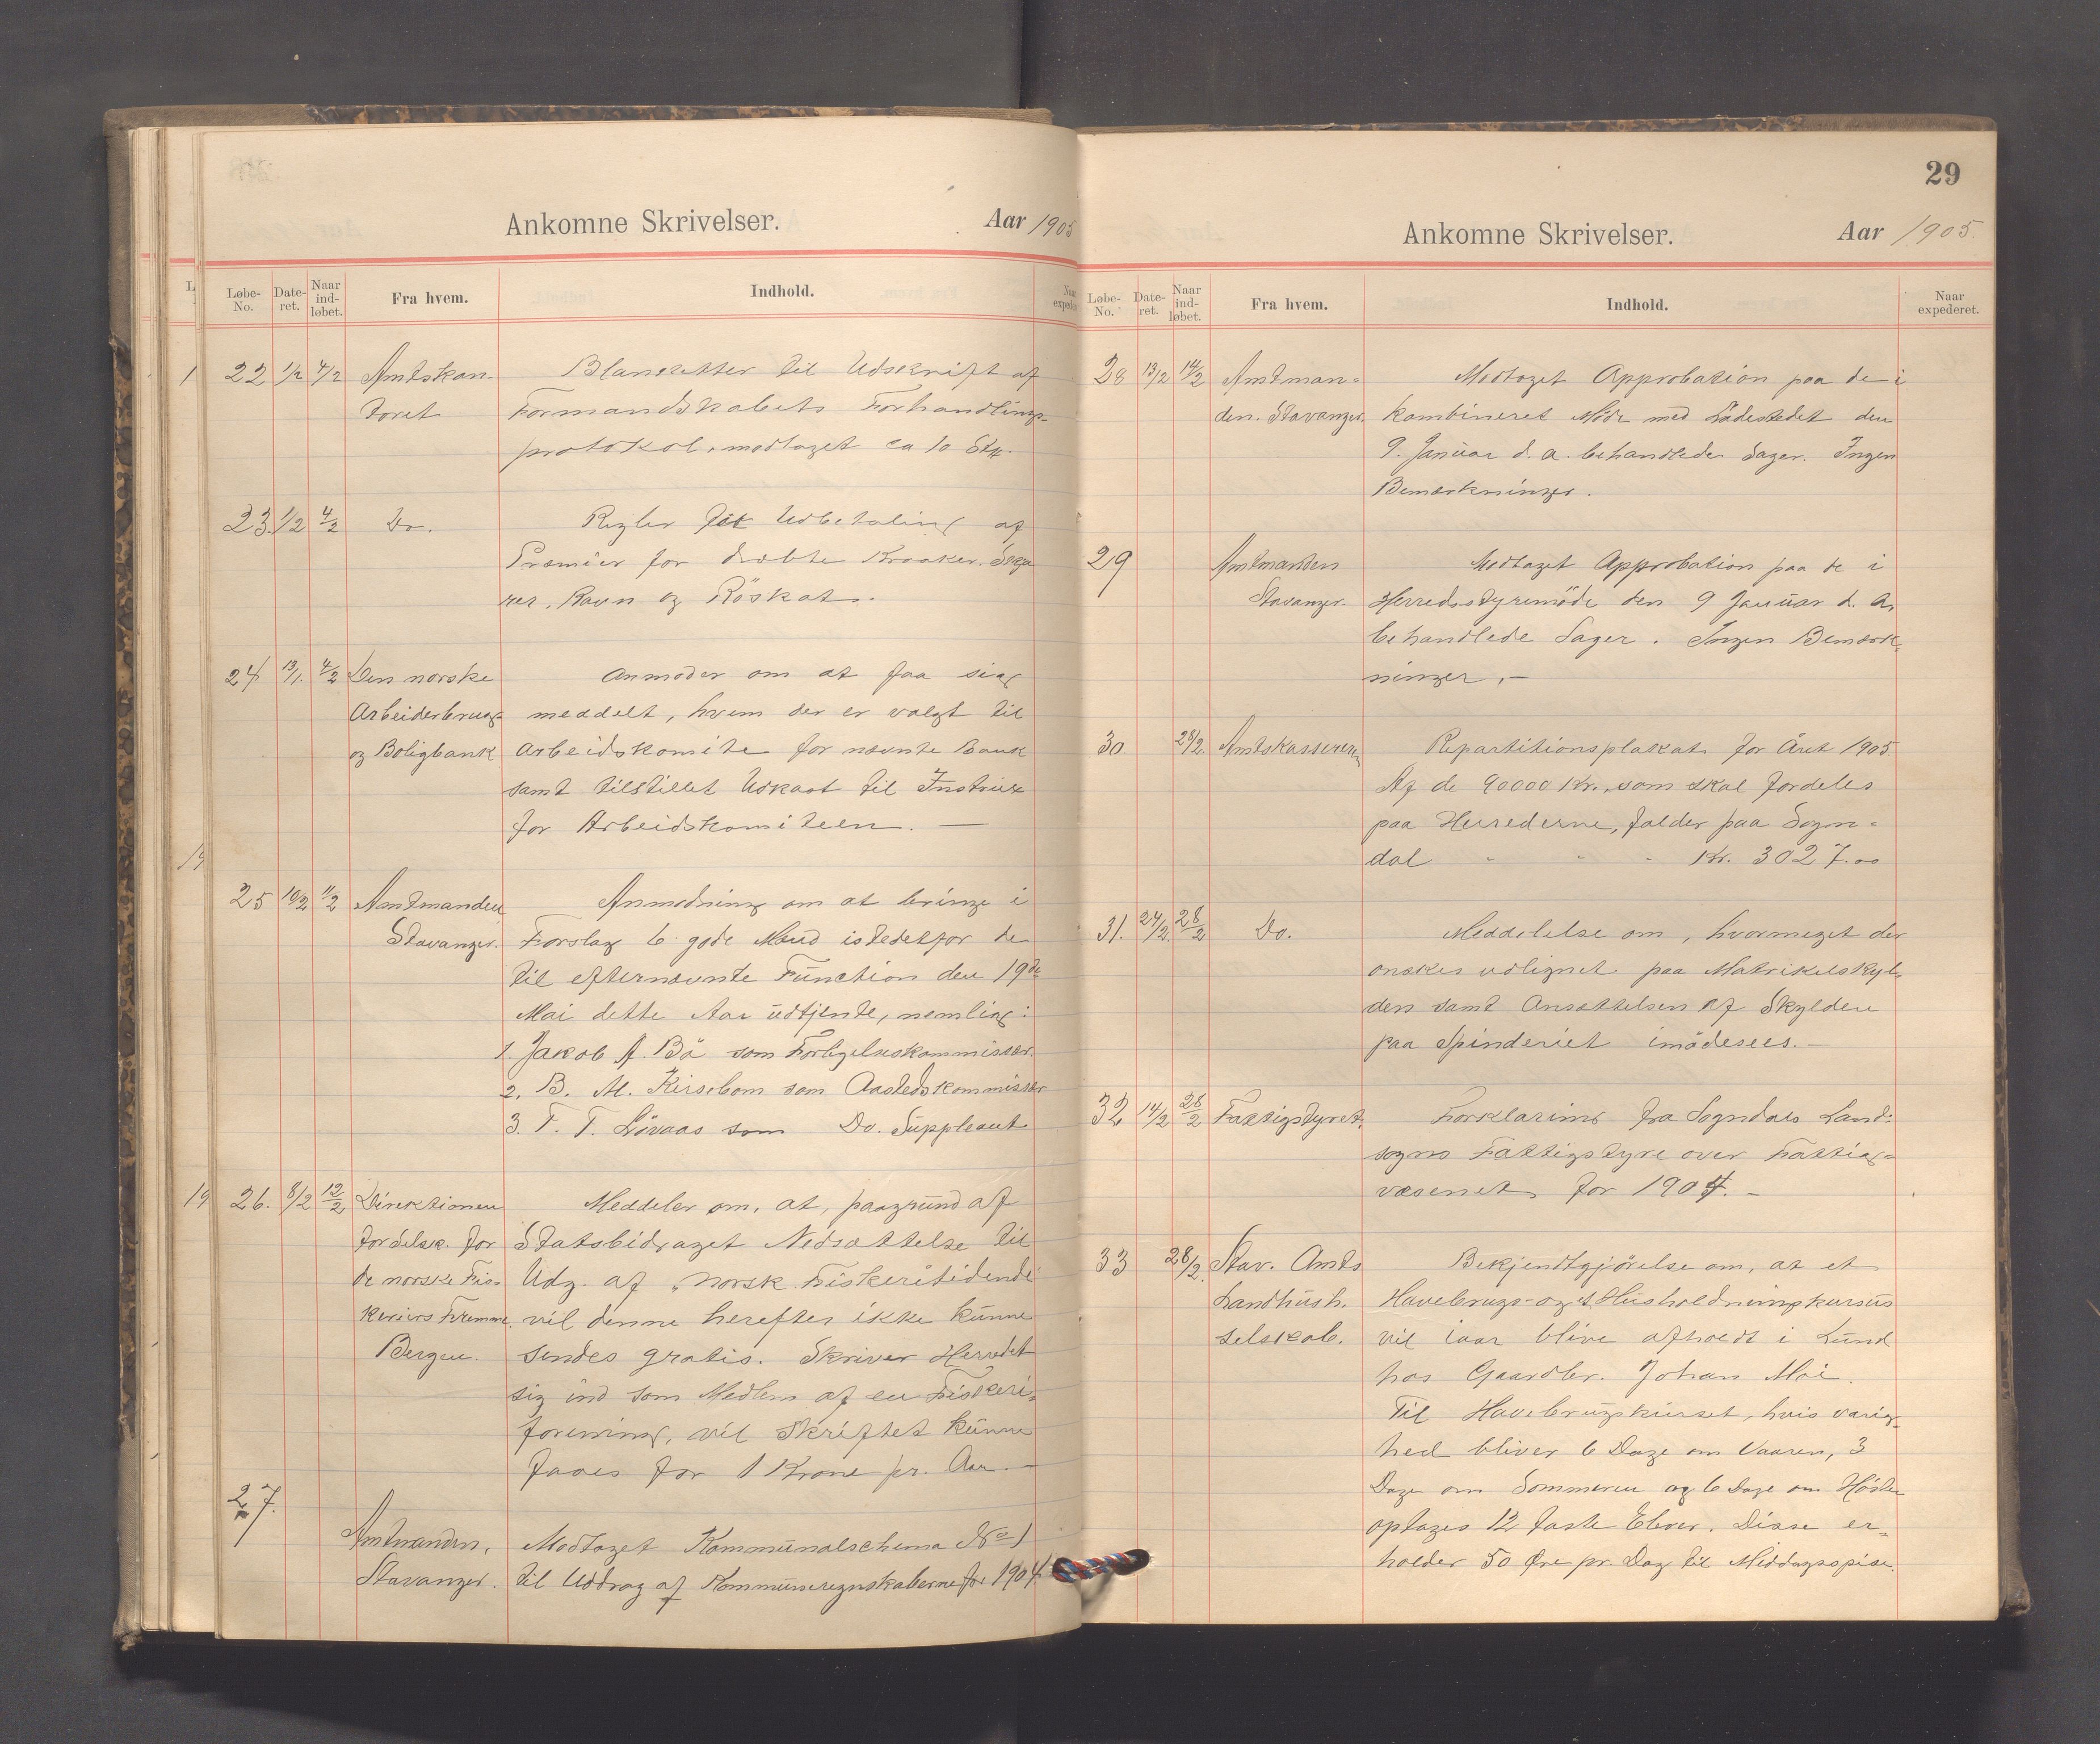 Ankomne Skrivelser. Aar 1905
Løbe-No. Date-ret. Naar ind-løbet. Fra hvem. Indhold.
22 1/2 4/2 Amtskan- Blanketter til Udskrift af
toret Formandskabets Forhandlings-
protokol, modtaget ca 10 Stk.
23. 1/2 4/2 Do. Regler for Udbetaling af
Præmier for dræbte Kraaker, Skjæ
rer, Ravn og Röskat.
24 13/1. 4/2 Den norske Anmoder om at faa sig
Arbeiderbrugs meddelt, hvem der er valgt til
og Boligbank Arbeidskomite for nævnte Bank
samt tilstillet Udkast til Instrux
for Arbeidskomiteen. —
25 10/2 11/2 Amtmanden Anmodning om at bringe i
Stavanger. Forslag 6 gode Mænd istedetfor de
til efternævnte Function den 19de
Mai dette Aar udtjente, nemlig:
1. Jakob A. Bö som Forligelseskommissær.
2. B. M. Kirsebom som Aastedskommissær
3. T. T. Lövaas som Do. Suppleant
26. 8/2 12/2 Direktionen Meddeler om, at, paagrund af
for Selsk. for Statsbidraget Nedsættelse til
de norske Fis- Udg. af „Norsk Fiskeritidende
keriers Fremme. vil denne herefter ikke kunne
Bergen. sendes gratis. Skriver Herredet
sig ind som Medlem af en Fiskeri-
forening, vil Skriftet kunne
faaes for 1 Krone pr. Aar. —
27.
Amtmanden, Modtaget Kommunalschema No 1
Stavanger. til Uddrag af Kommuneregnskaberne for 1904
29
Ankomne Skrivelser. Aar 1905.
Løbe-No. Date-ret. Naar ind-løbet. Fra hvem. Indhold. Naar expederet.
28 13/2 14/2 Amtman- Modtaget Approbation paa de i
den. Stavanger. kombineret Möde med Ladestedet den
9. Januar d. a. behandlede Sager. Ingen
Bemærkninger.
29 Amtmanden Modtaget Approbation paa de i
Stavanger. Herredsstyremöde den 9 Januar d. A.
behandlede Sager. Ingen Bemærk-
ninger. —
30 28/2. Amtskasseren Repartitionsplakat for Året 1905.
Af de 90000 Kr., som skal fordeles
paa Herrederne, falder paa Sogn-
dal - - - Kr. 3027.00
31. 24/2. 28/2 Do. Meddelelse om, hvormeget der
önskes udlignet paa Matrikelskyl-
den samt Ansættelsen af Skylden
paa Spinderiet imödesees. —
32 14/2 28/2 Fattigstyret. Forklaring fra Sogndals Land-
sogns Fattigstyre over Fattig-
væsenet for 1904. —
33 28/2. Stav. Amts Bekjendtgjörelse om, at et
Landhush. Havebrugs- og et Husholdningskursus
selskab. vil iaar blive afholdt i Lund
hos Gaardbr. Johan Moi.
Til Havebrugskurset, hvis varig-
hed bliver 6 Dage om Vaaren, 3
Dage om Sommeren og 6 Dage om Hösten
optages 12 faste Elever. Disse er-
holder 50 Øre pr. Dag til Middagsspise.